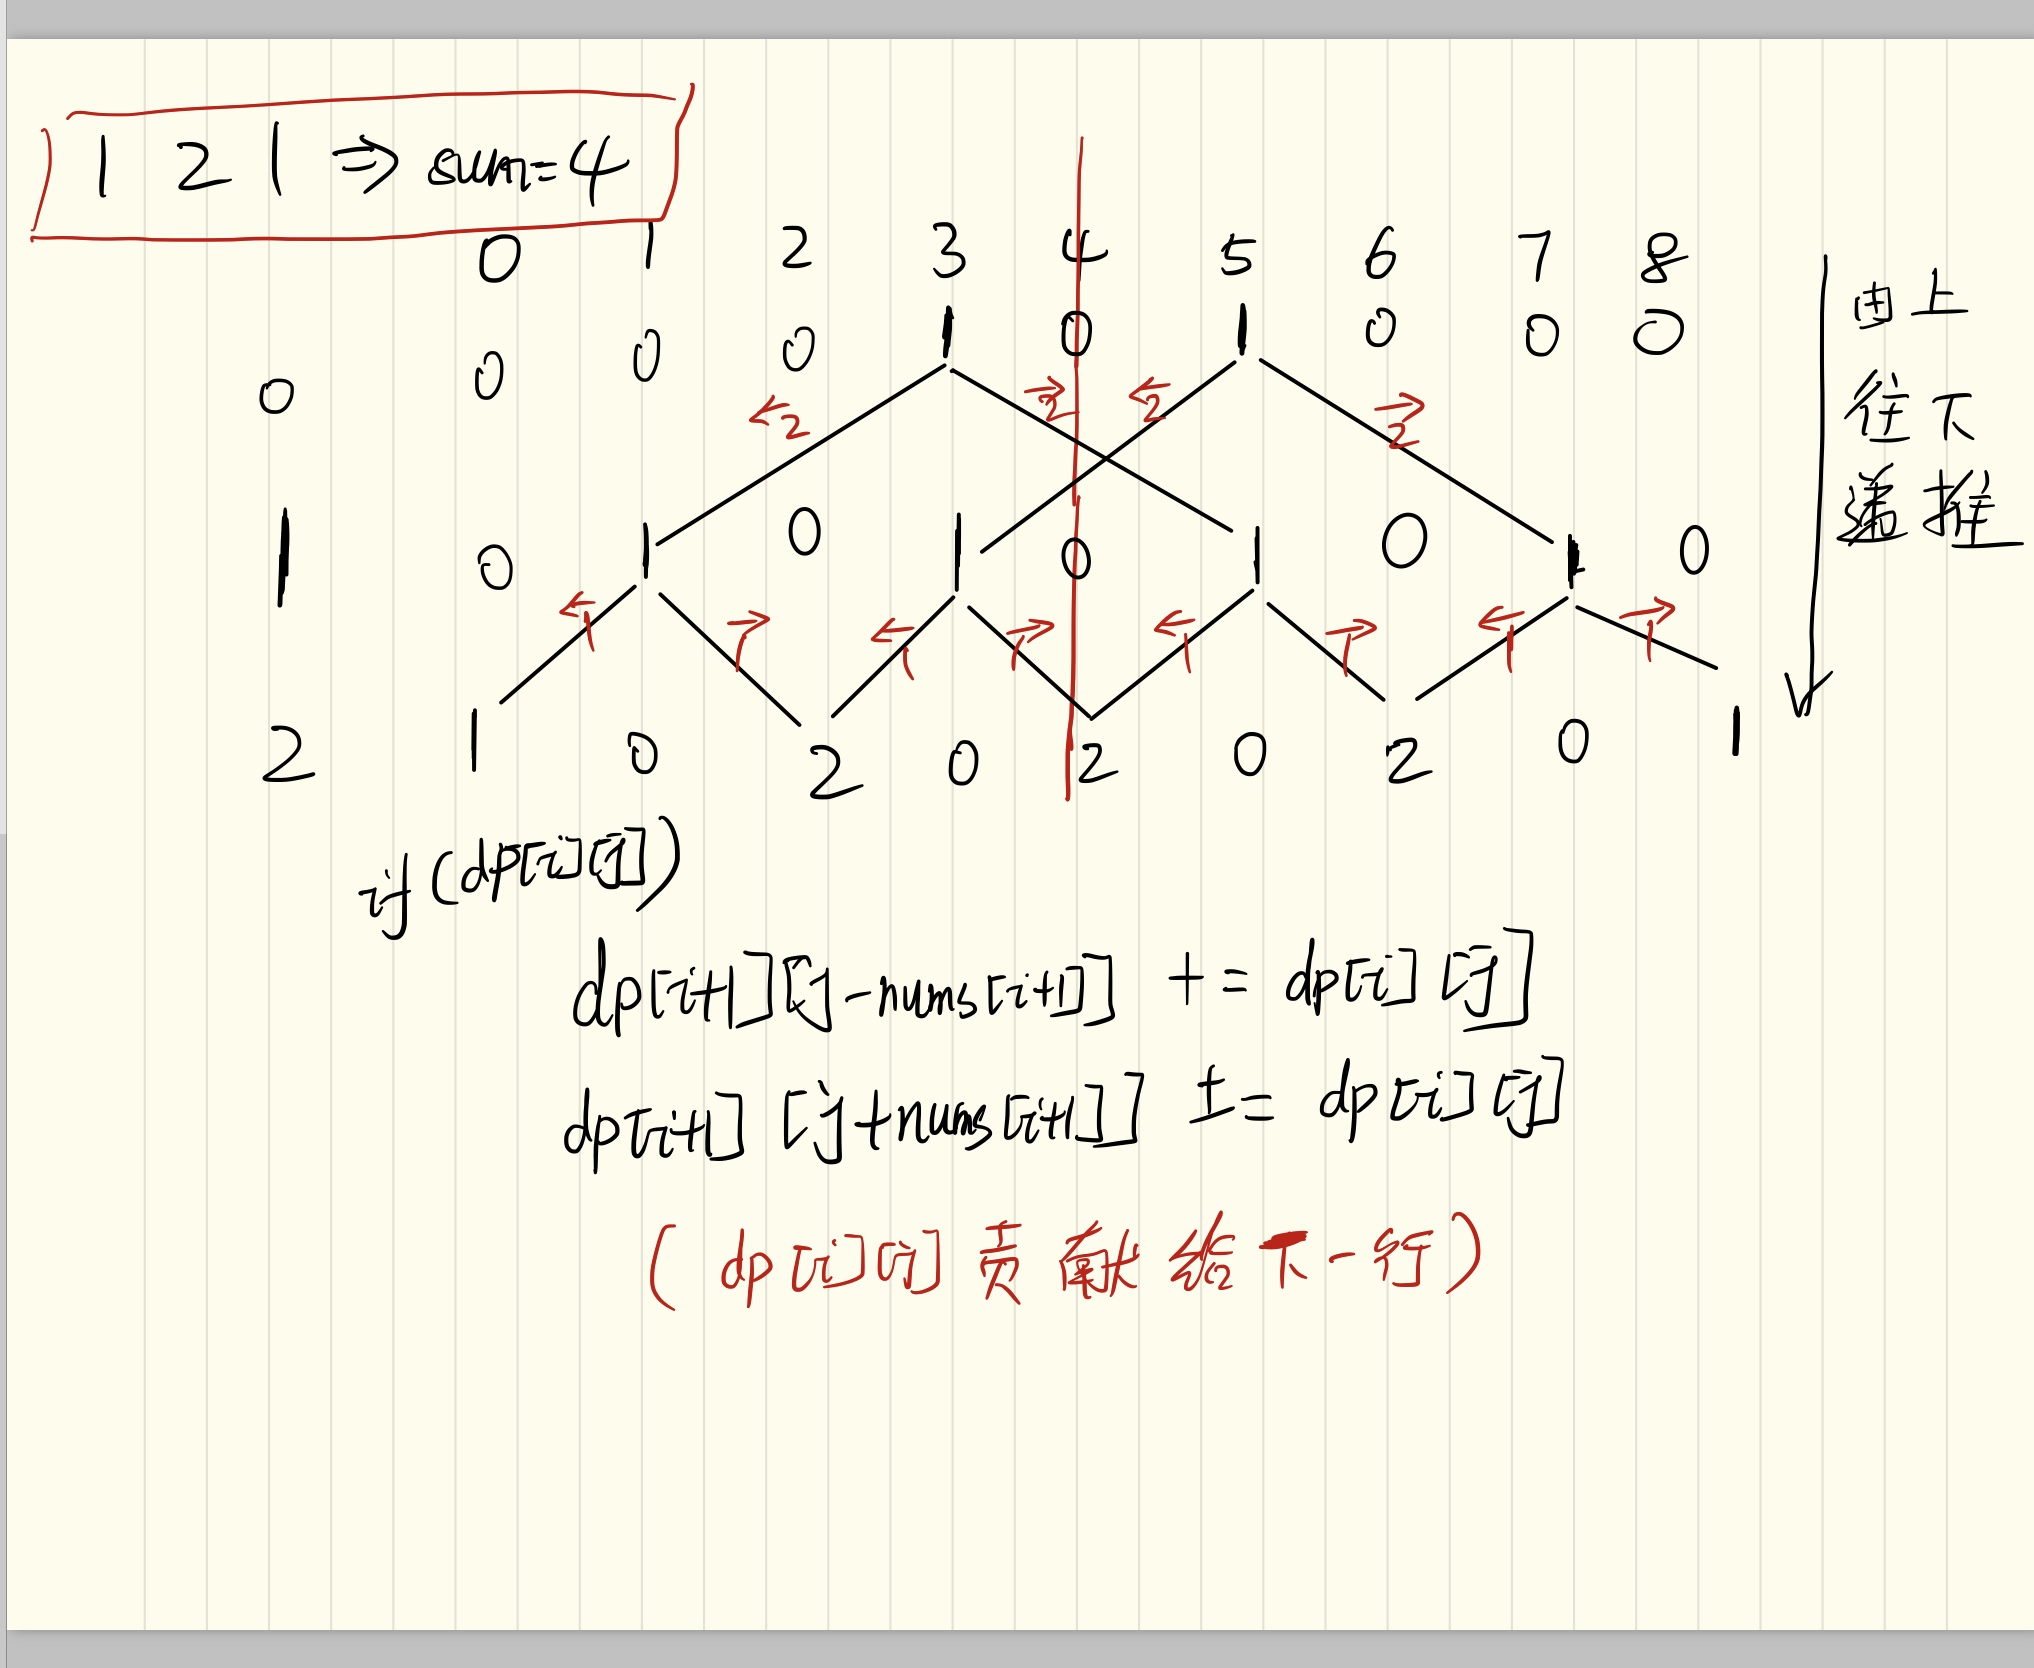 1 2 1 ⇒ sum=4
0 1 2 3 4 5 6 7 8
0 0 0 0 1 0 1 0 0 0
←2 →2 ←2 →2
1 0 1 0 1 0 1 0 1 0
←1 →1 ←1 →1 ←1 →1 ←1 →1
2 1 0 2 0 2 0 2 0 1
由上
往下
递推
if (dp[i][j])
dp[i+1][j-nums[i+1]] += dp[i][j]
dp[i+1][j+nums[i+1]] += dp[i][j]
(dp[i][j]贡献给下一行)